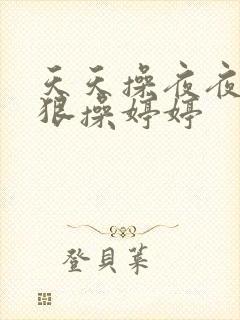 天天操夜夜
狠操婷婷
登貝葉